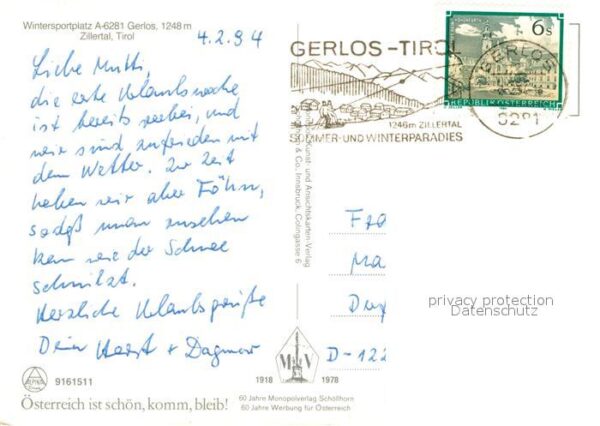 Wintersportplatz A-6281 Gerlos, 1248 m
Zillertal, Tirol
4.2.94
Liebe Mutti,
die erste Urlaubswoche
ist bereits vorbei, und
wir sind zufrieden mit
dem Wetter. Zur Zeit
haben wir aber Föhn,
sodaß man zusehen
kann wie der Schnee
schmilzt.
Herzliche Urlaubsgrüße
Deine Horst + Dagmar
GERLOS-TIROL
1246m ZILLERTAL
SOMMER- UND WINTERPARADIES
6 s
REPUBLIK ÖSTERREICH
GERLOS
6281
Kunst- und Ansichtskarten-Verlag
& Co., Innsbruck, Colingasse 6
Fra
Ma
D-122
privacy protection
Datenschutz
ALPINA
9161511
1918
M V
1978
Österreich ist schön, komm, bleib!
60 Jahre Monopolverlag Schöllhorn
60 Jahre Werbung für Österreich